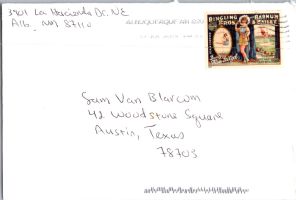 3901 La Hacienda Dr. NE
Alb. NM 87110
ALBUQUERQUE NM
RINGLING BROS
BARNUM & BAILEY
Sam Van Blarcom
42 Woodstone Square
Austin, Texas
78703